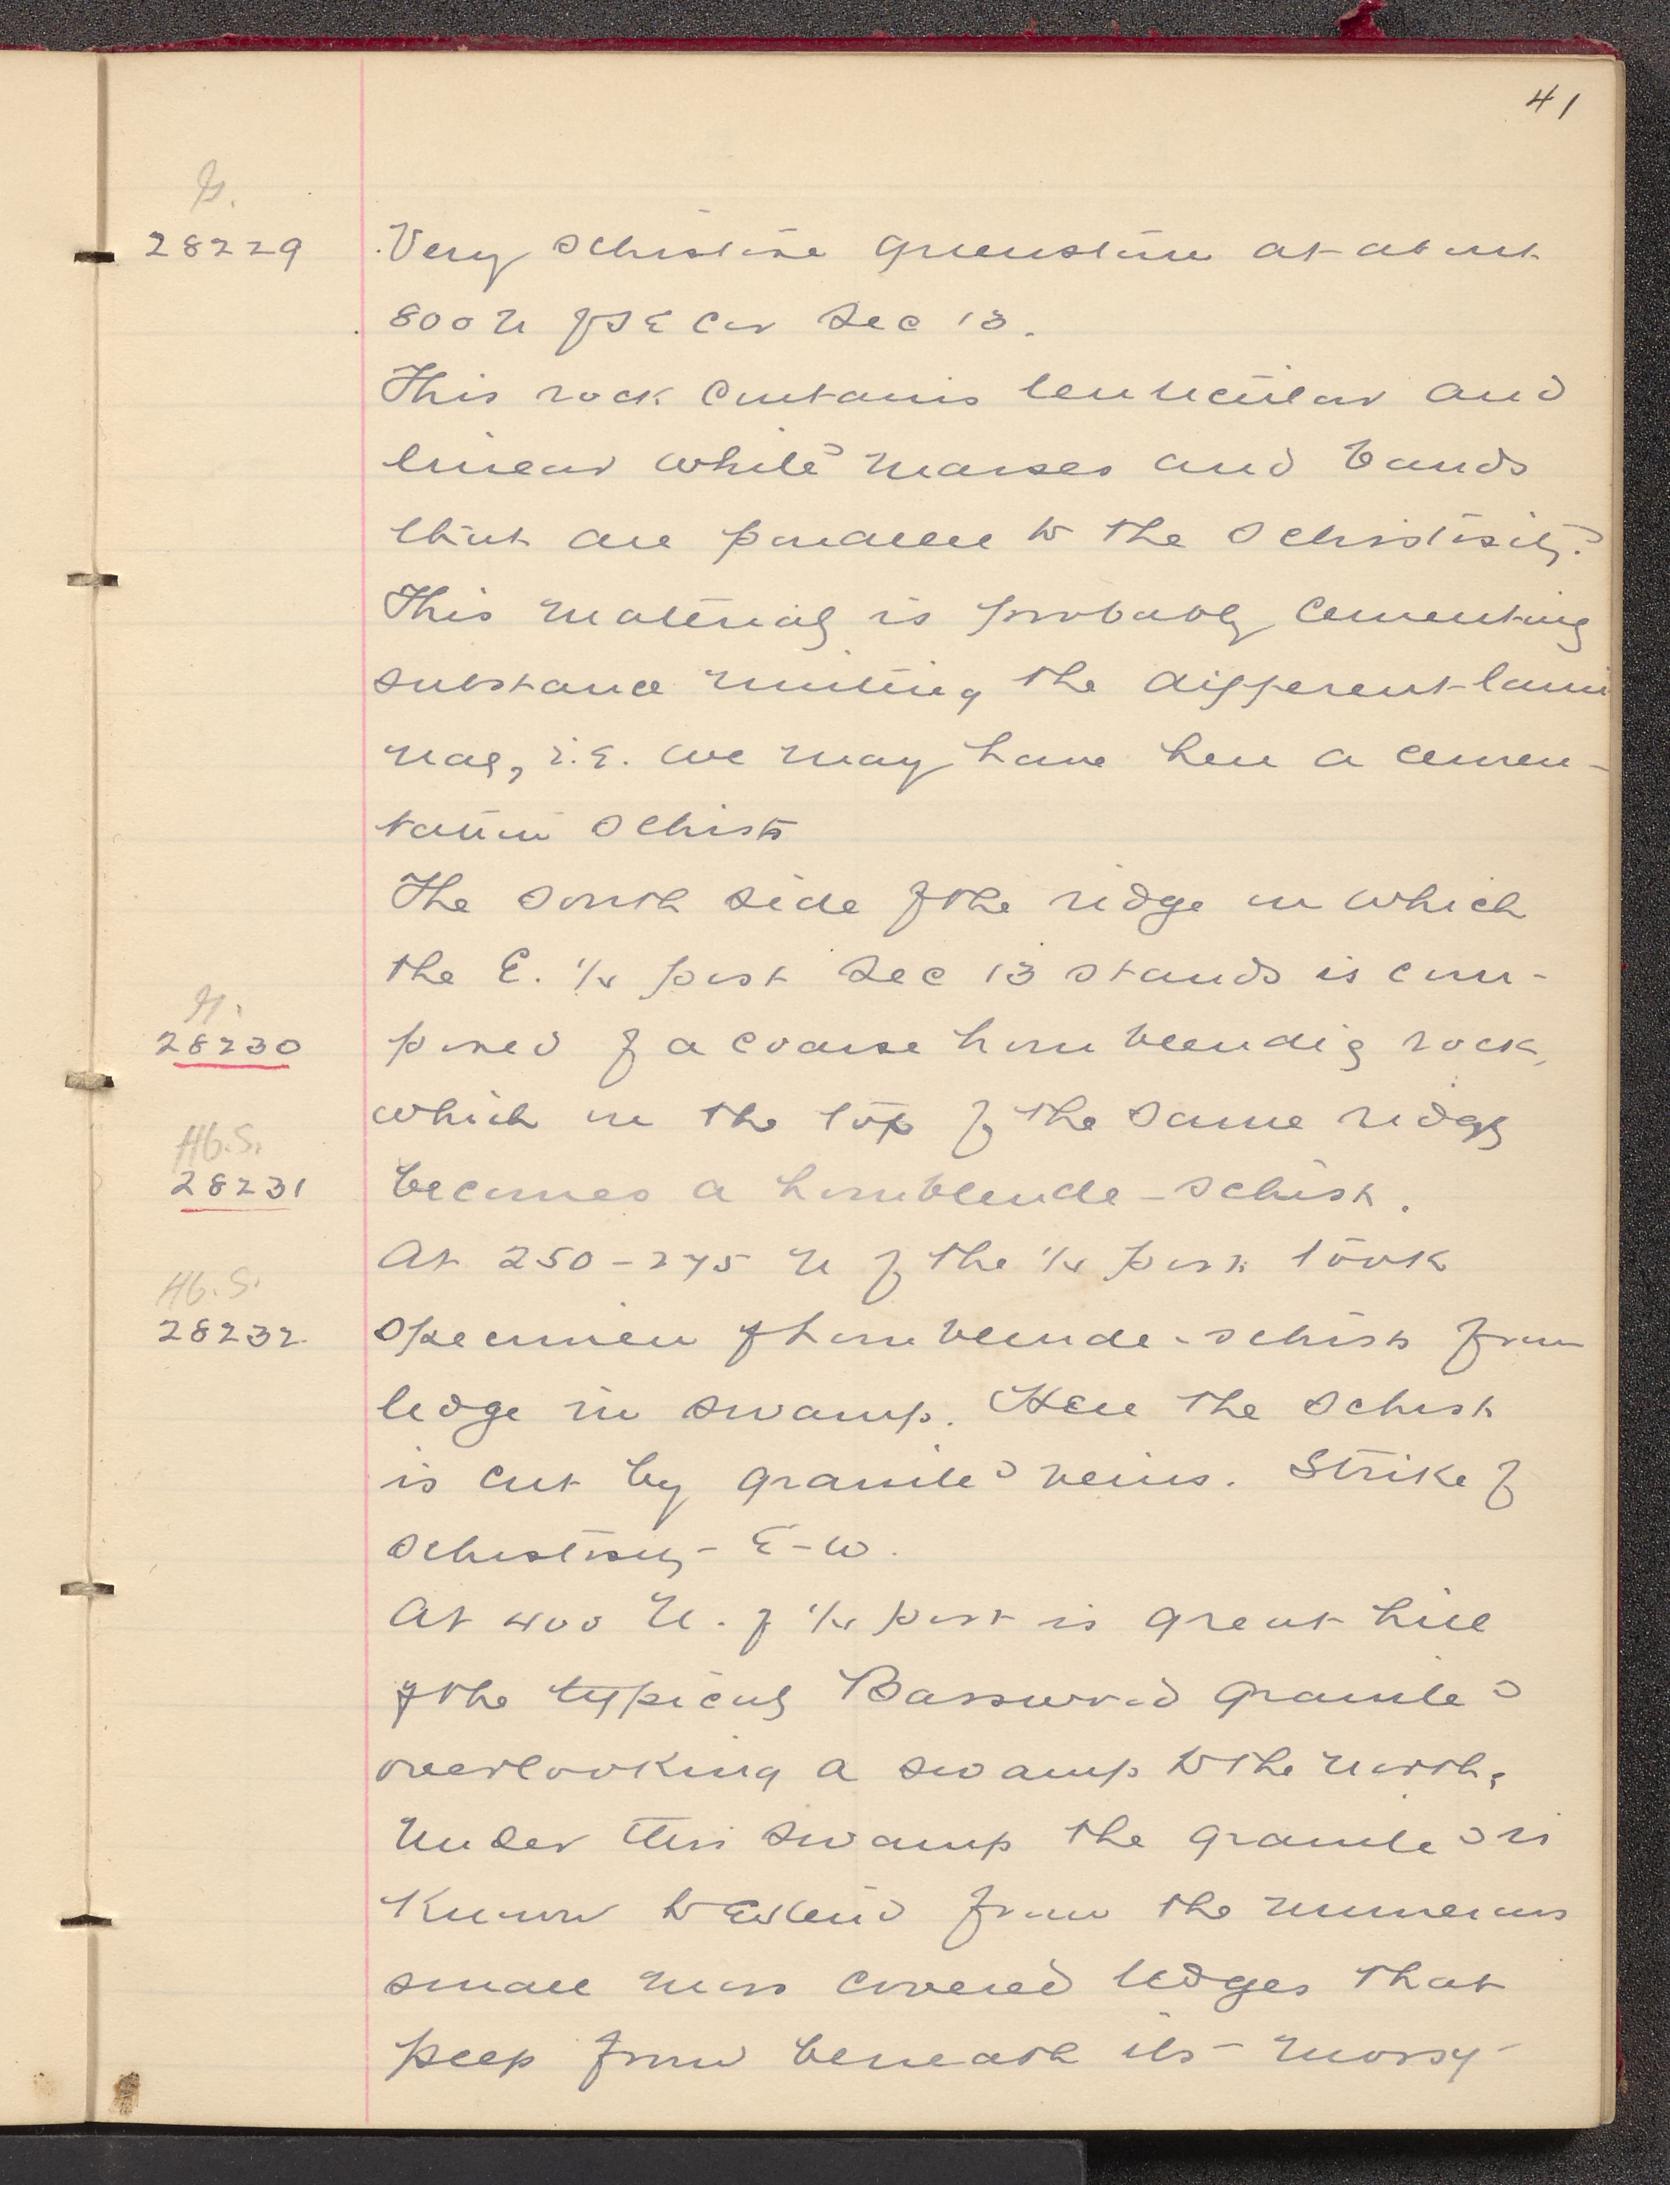 41
G.
28229 Very schistose greenstone at about
800 N of SE Cor Sec 13.
This rock contains lenticular and
linear white masses and bands
that are parallel to the schistosity.
This material is probably cementing
substance uniting the different lami
nae, i.e. we may have here a cemen-
tation schist
The south side of the ridge on which
the E. 1/4 post Sec 13 stands is com-
G.
28230 posed of a coarse hornblendic rock,
which on the top of the same ridge
Hb.S.
28231 becomes a hornblende-schist.
At 250-275 N of the 1/4 post took
Hb.S.
28232 specimen of hornblende-schist from
ledge in swamp. Here the schist
is cut by granite veins. Strike of
schistosity - E-W.
At 400 N. of 1/4 post is great hill
of the typical Basswood granite
overlooking a swamp to the north.
Under this swamp the granite is
known to extend from the numerous
small moss covered ledges that
peep from beneath its mossy